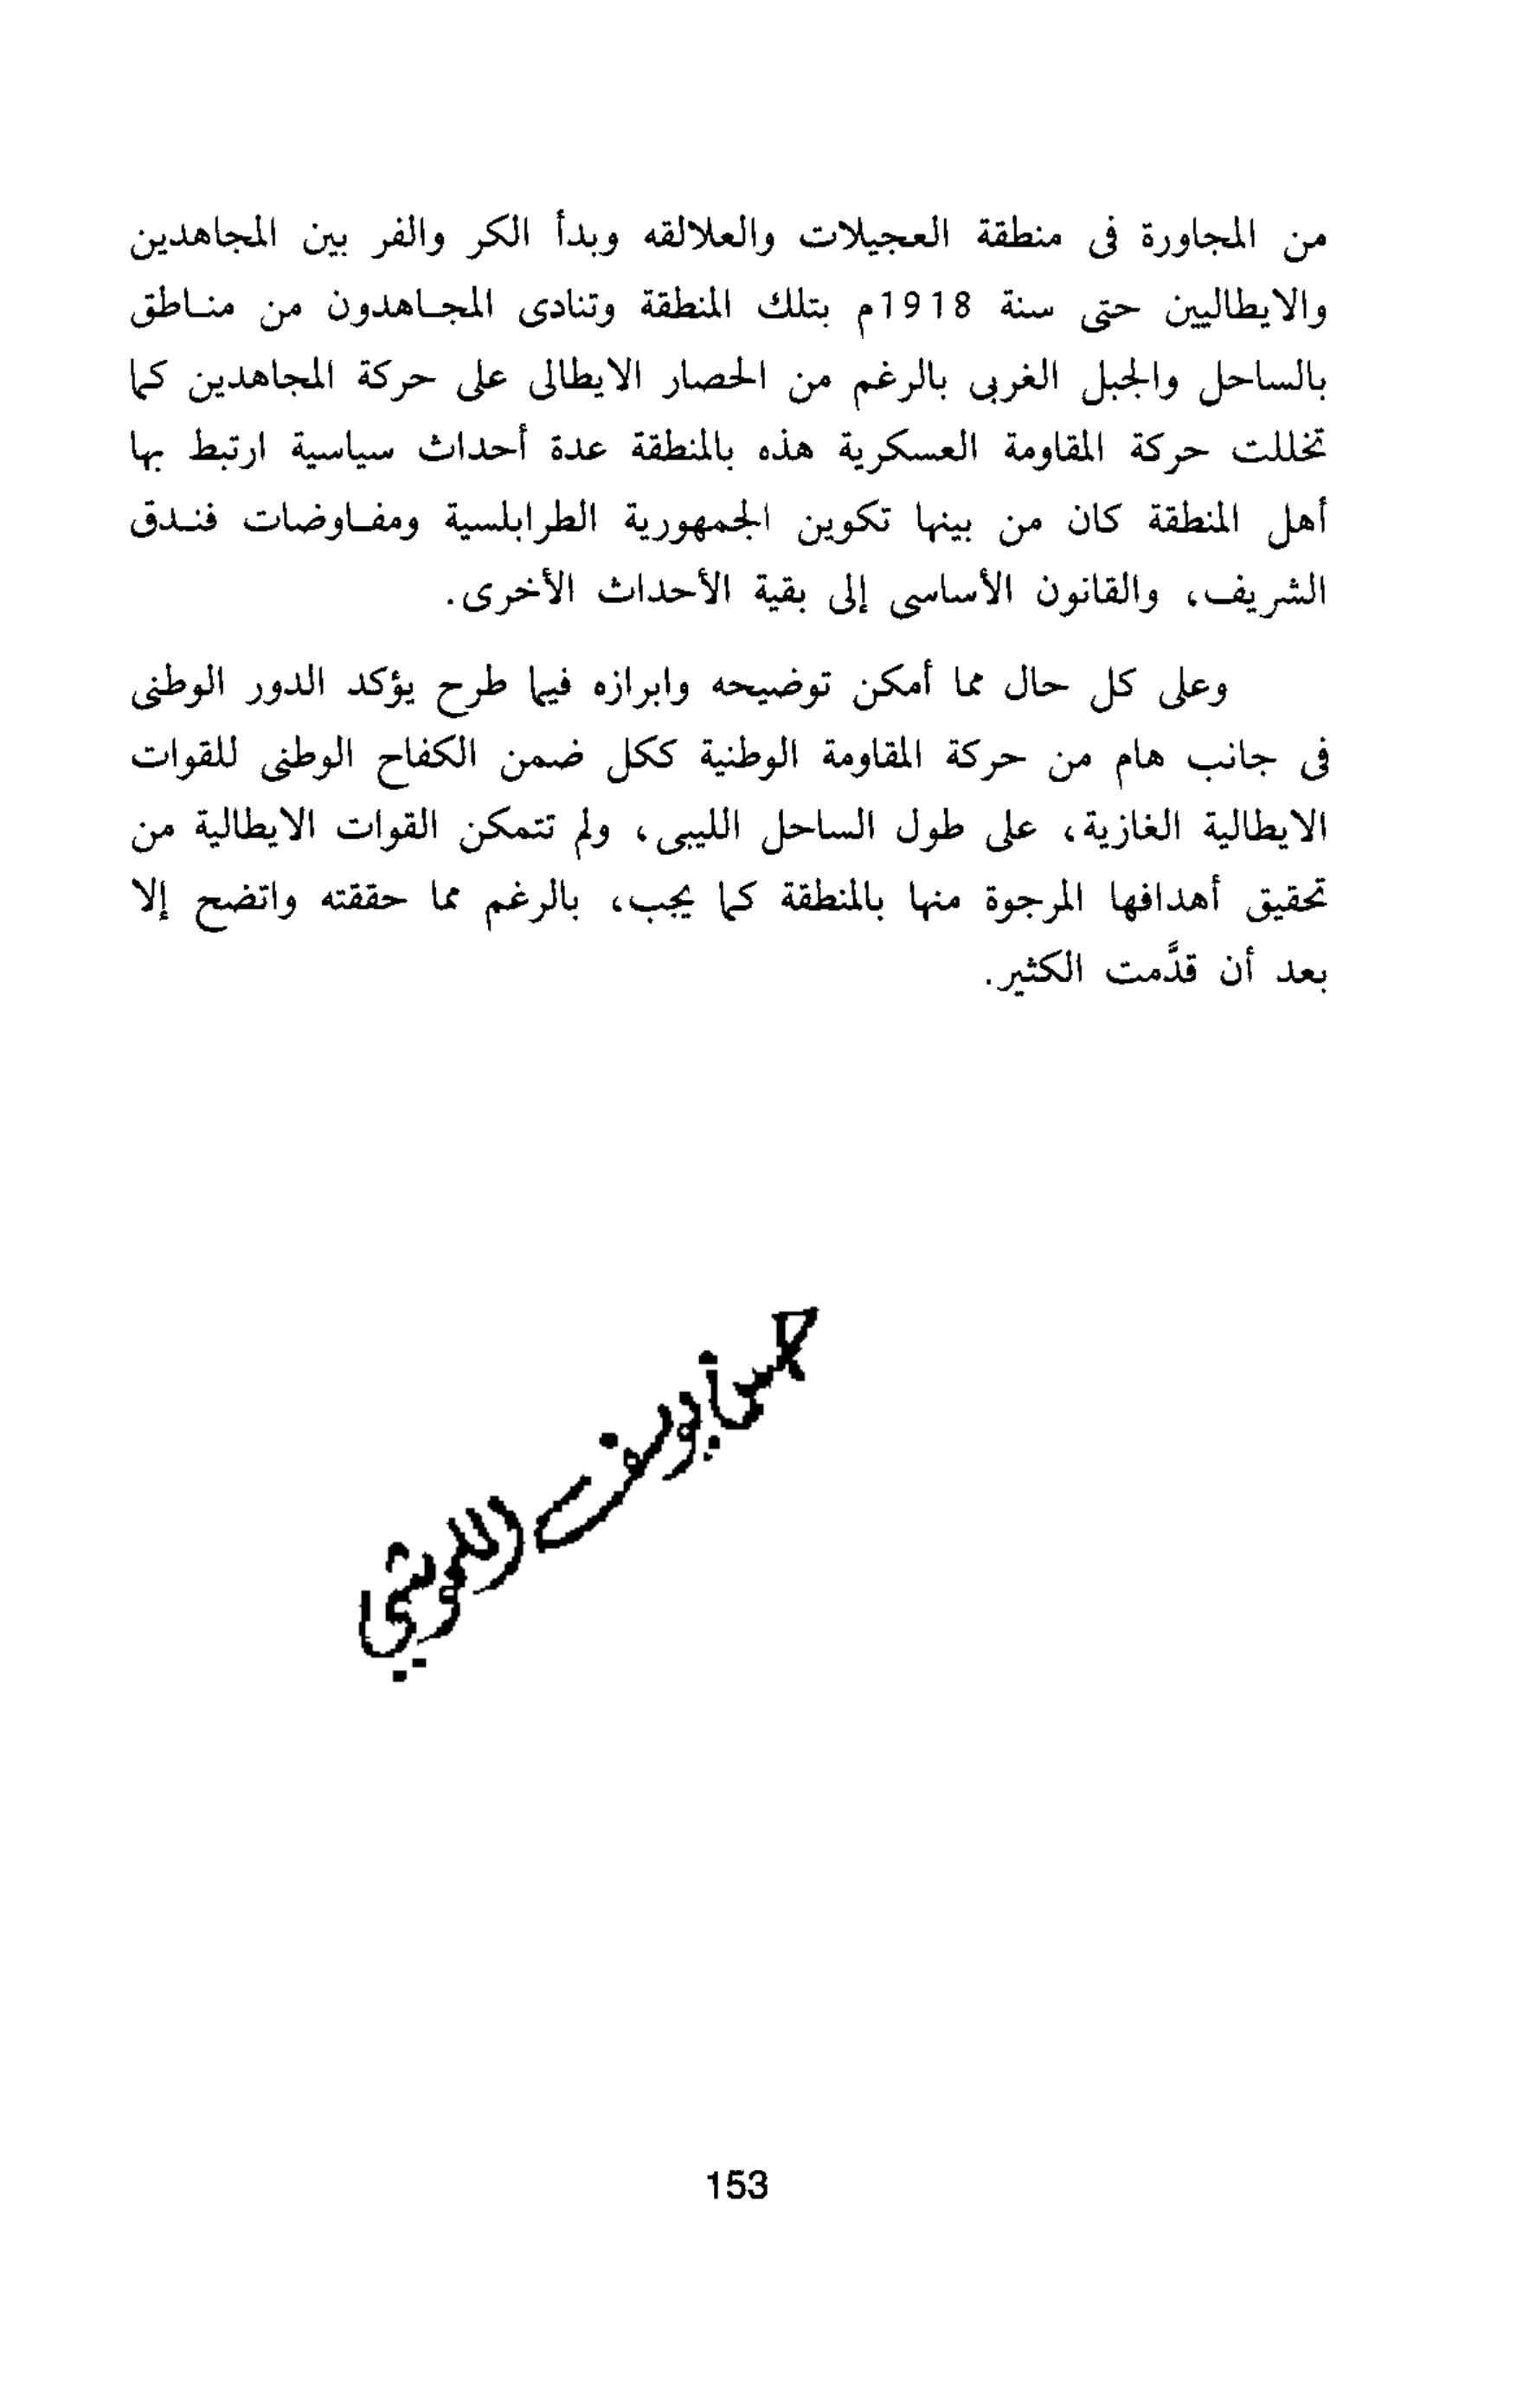 من المجاورة فى منطقة العجيلات والعلالقه وبدأ الكر والفر بين المجاهدين
والايطاليين حتى سنة 1918م بتلك المنطقة وتنادى المجـاهدون من منـاطق
بالساحل والجبل الغربى بالرغم من الحصار الايطالى على حركة المجاهدين كما
تخللت حركة المقاومة العسكرية هذه بالمنطقة عدة أحداث سياسية ارتبط بها
أهل المنطقة كان من بينها تكوين الجمهورية الطرابلسية ومفـاوضات فنـدق
الشريف، والقانون الأساسى إلى بقية الأحداث الأخرى.
وعلى كل حال مما أمكن توضيحه وابرازه فيما طرح يؤكد الدور الوطنى
فى جانب هام من حركة المقاومة الوطنية ككل ضمن الكفاح الوطنى للقوات
الايطالية الغازية، على طول الساحل الليبى، ولم تتمكن القوات الايطالية من
تحقيق أهدافها المرجوة منها بالمنطقة كما يجب، بالرغم مما حققته واتضح إلا
بعد أن قدَّمت الكثير.
153